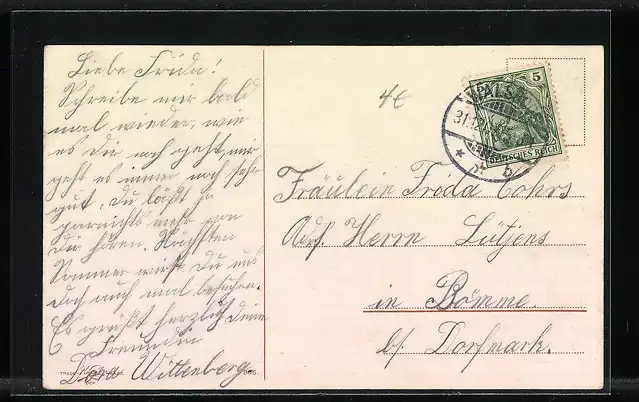 Liebe Frida!
Schreibe mir bald
mal wieder, wie
es Dir noch geht, mir
geht es immer noch sehr
gut. Du läßt ja
garnichts mehr von
Dir hören. Nächsten
Sommer wirst Du uns
doch auch mal besuchen.
Es grüßt herzlich Deine
Freundin
Dora Wittenberg.
4€
5
DEUTSCHES REICH
31.12
* b
Fräulein Frida Cohrs
Adr. Herrn Lütjens
in Bömme.
b/ Dorfmark.